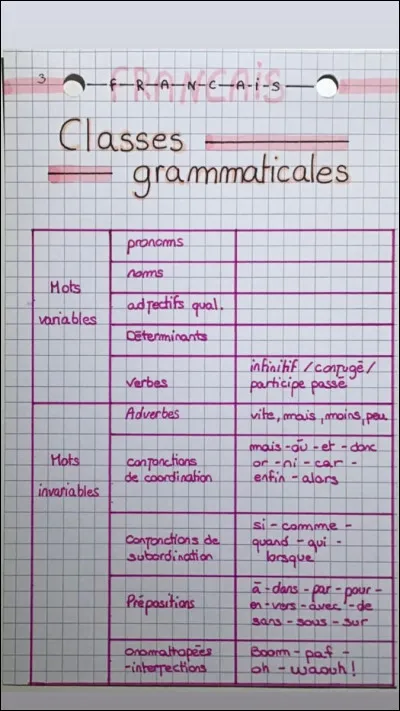 3
FRANCAIS
F-R-A-N-C-A-I-S
Classes
grammaticales
Mots
variables
pronoms
noms
adjectifs qual.
Déterminants
verbes
infinitif / conjugé /
participe passé
Mots
invariables
Adverbes
vite, mais, moins, peu
conjonctions
de coordination
mais - où - et - donc
or - ni - car -
enfin - alors
Conjonctions de
subordination
si - comme -
quand - qui -
lorsque
Prépositions
à - dans - par - pour -
en - vers - avec - de
sans - sous - sur
onomatopées
-interjections
Boom - paf -
oh - waouh !